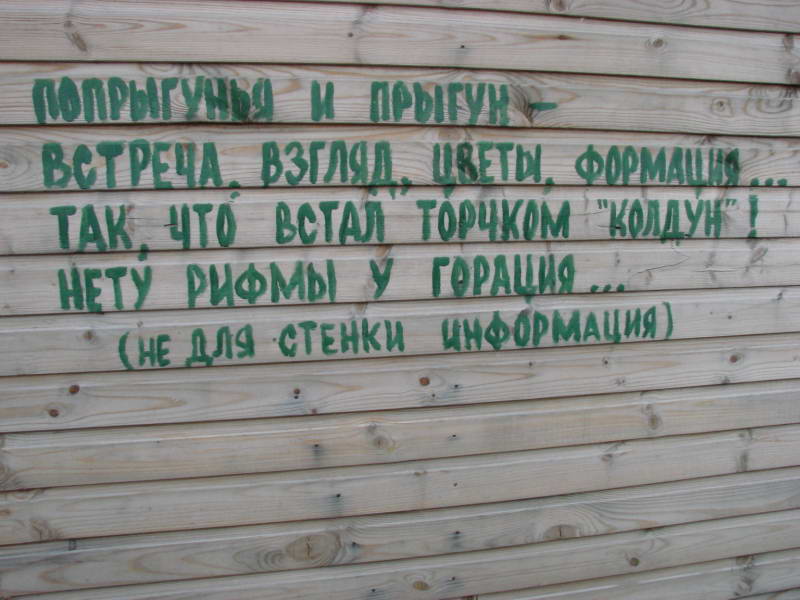 ПОПРЫГУНЬЯ И ПРЫГУН –
ВСТРЕЧА, ВЗГЛЯД, ЦВЕТЫ, ФОРМАЦИЯ...
ТАК, ЧТО ВСТАЛ ТОРЧКОМ "КОЛДУН"!
НЕТУ РИФМЫ У ГОРАЦИЯ...
(НЕ ДЛЯ СТЕНКИ ИНФОРМАЦИЯ)